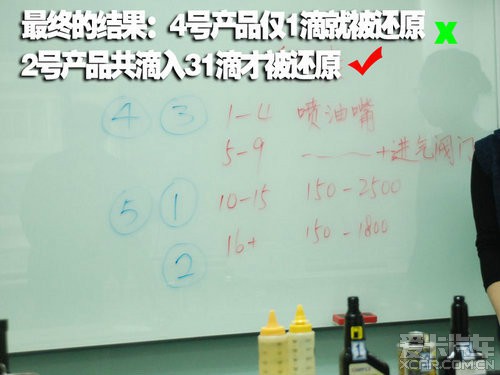 最终的结果：4号产品仅1滴就被还原 x
2号产品共滴入31滴才被还原
④ ③ 1-4 喷油嘴
5-9 -———+进气阀门
⑤ ① 10-15 150-2500
② 16+ 150-1800
1
2
爱卡汽车
XCAR.COM.CN